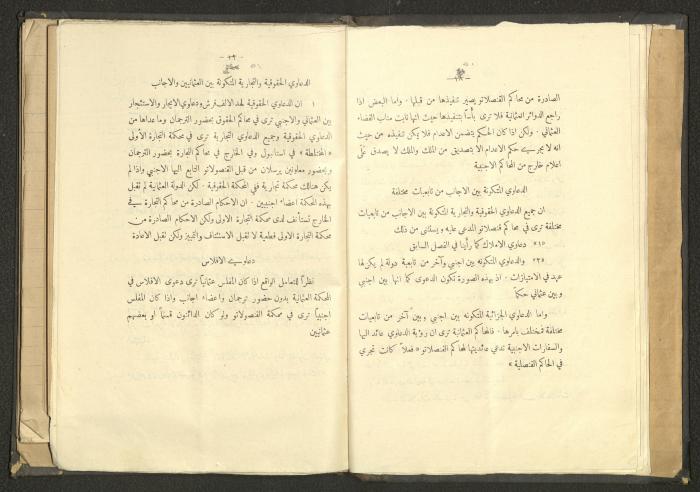 الصادرة من محاكم القنصلاتو يصير تنفيذها من قبلها. واما البعض اذا
راجع الدوائر العثمانية فلا ترى بأساً بتنفيذها حيث انها نابت مناب القضاء
العثماني. ولكن اذا كان الحكم يتضمن الاعدام فلا يمكن تنفيذه من حيث
انه لا يجرى حكم الاعدام الا بتصديق من الملك والملك لا يصدق على
اعلام خارج من المحاكم الاجنبية
الدعاوي المتكونة بين الاجانب من تابعيات مختلفة
ان جميع الدعاوي الحقوقية والتجارية المتكونة بين الاجانب من تابعيات
مختلفة ترى في محاكم قنصلاتو المدعى عليه ويستثنى من ذلك
«١» دعاوي الاملاك كما رأينا في الفصل السابق
«٢» والدعاوي المتكونه بين اجنبي وآخر من تابعية دولة لم يكن لها
عهد في الامتيازات. اذ بهذه الصورة تكون الدعوى كما انها بين اجنبي
وبين عثماني حكماً
واما الدعاوي الجزائية المتكونه بين اجنبي وبين آخر من تابعيات
مختلفة فمختلف بامرها. فالمحاكم العثمانية ترى ان رؤية الدعاوي عائد اليها
والسفارات الاجنبية تدعي عائديتها لمحاكم القنصلاتو «فعلاً كانت تجري
في المحاكم القنصلية»
- ٣٣ -
الدعاوي الحقوقية والتجارية المتكونة بين العثمانيين والاجانب
١ ان الدعاوي الحقوقية لحد الالف قرش ودعاوي الايجار والاستئجار
بين العثماني والاجنبي ترى في محاكم الحقوق بحضور الترجمان وما عداها من
الدعاوي الحقوقية وجميع الدعاوي التجارية ترى في محكمة التجارة الأولى
«المختلطة» في استانبول وفي الخارج في محاكم التجارة بحضور الترجمان
وبحضور معاونين يرسلان من قبل القنصولاتو التابع اليها الاجنبي واذا لم
يكن هنالك محكمة تجارية ففي المحكمة الحقوقية. لكن الدولة العثمانية لم تقبل
بهذه المحكمة اعضاء اجنبيين. ان الاحكام الصادرة من محاكم التجارة في
الخارج تستأنف لدى محكمة التجارة الاولى ولكن الاحكام الصادرة من
محكمة التجارة الاولى قطعية لا تقبل الاستئناف والتمييز ولكن تقبل الاعادة
دعاوي الافلاس
نظراً للتعامل الواقع اذا كان المفلس عثمانياً ترى دعوى الافلاس في
المحكمة العثمانية بدون حضور ترجمان واعضاء اجانب واذا كان المفلس
اجنبياً ترى في محكمة القنصولاتو ولو كان الدائنون قسماً او بعضهم
عثمانيين